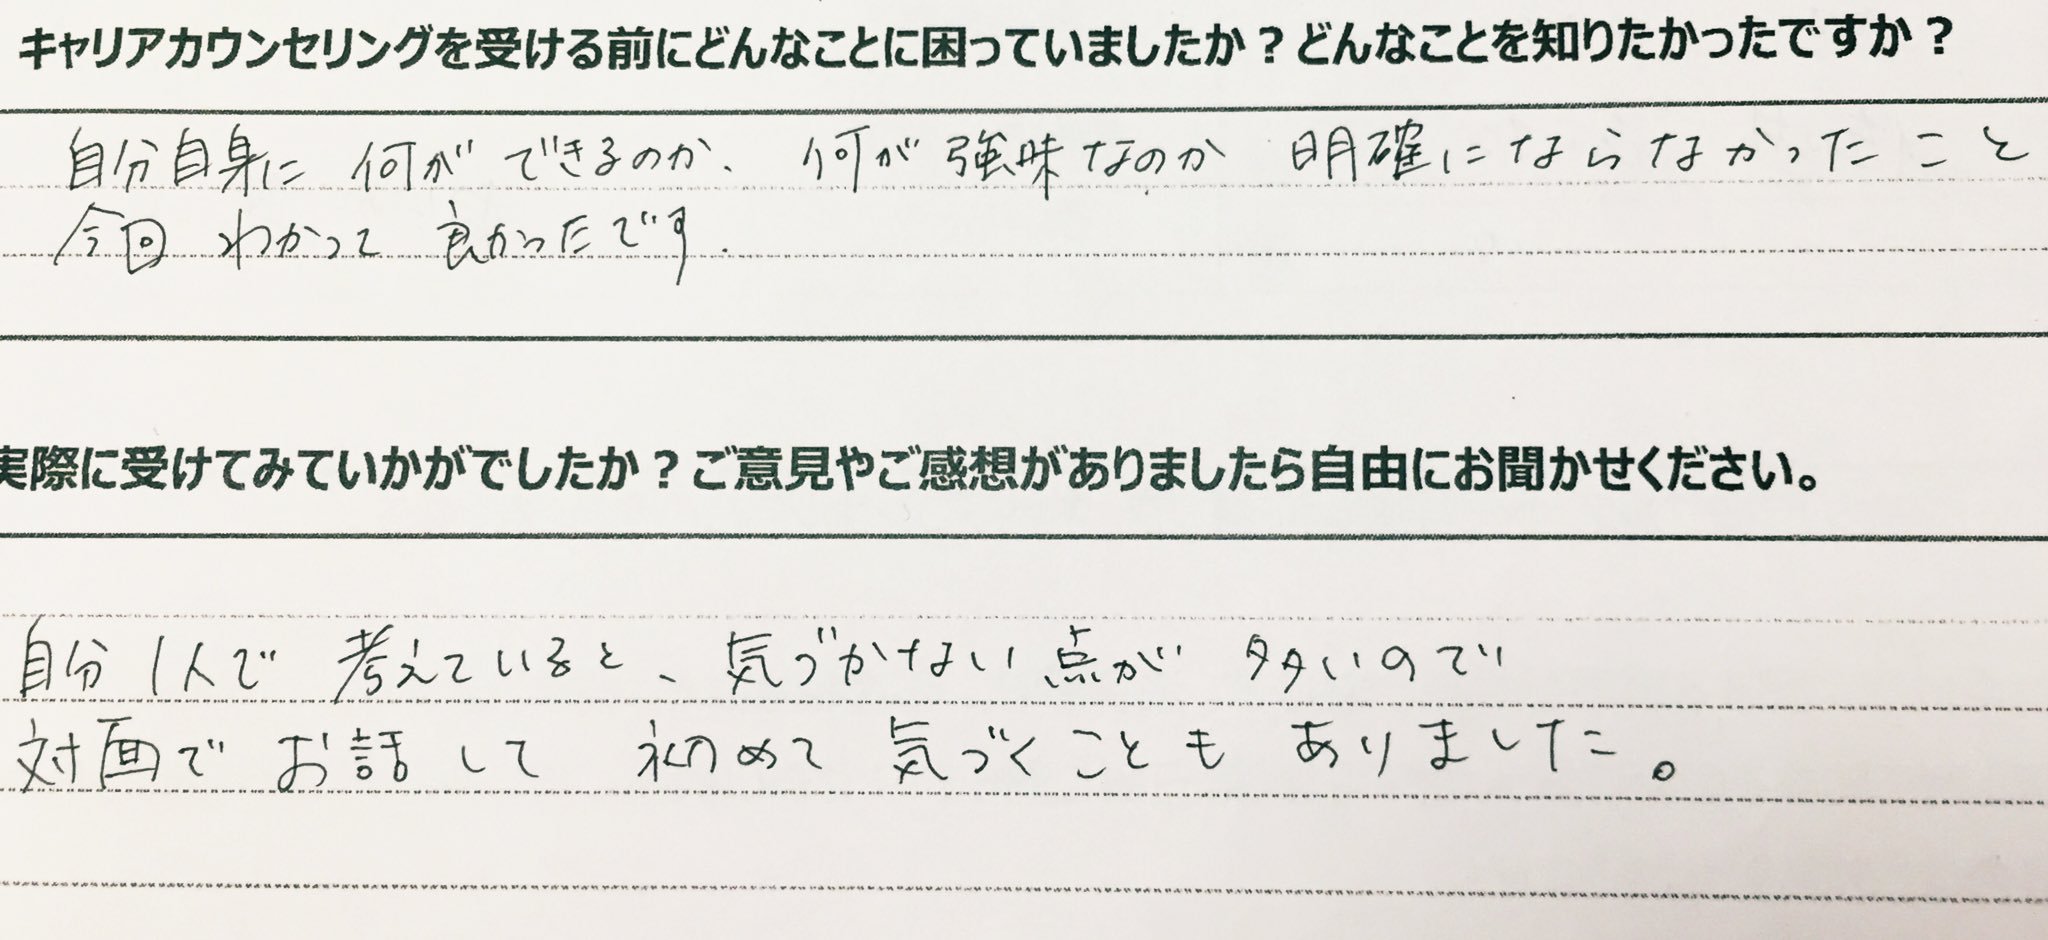 キャリアカウンセリングを受ける前にどんなことに困っていましたか？どんなことを知りたかったですか？
自分自身に何ができるのか、何が強味なのか明確にならなかったこと
今回わかって良かったです.
実際に受けてみていかがでしたか？ご意見やご感想がありましたら自由にお聞かせください。
自分1人で考えていると、気づかない点が多いので
対面でお話して初めて気づくこともありました。